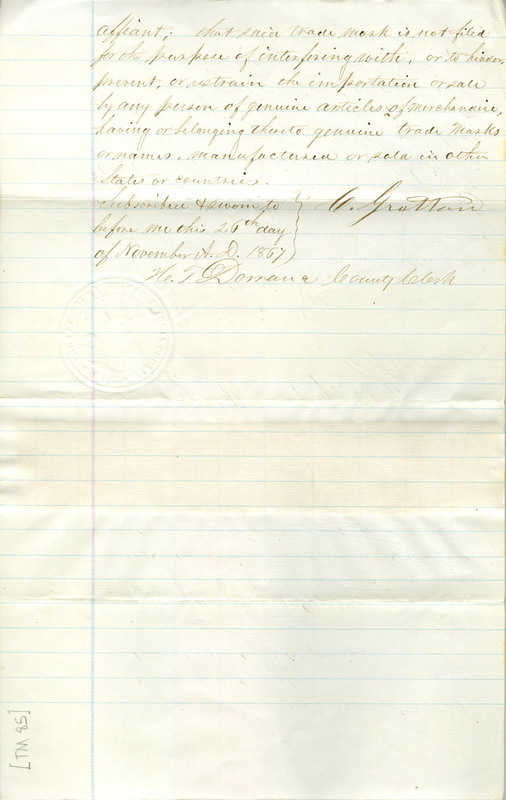 affiant; that said trade mark is not filed
for the purpose of interfering with, or to hinder,
prevent, or restrain the importation or sale
by any person of genuine articles of merchandise,
having or belonging thereto genuine trade marks
or names, manufactured or sold in other
States or countries.
Subscribed & sworn to
before me this 26th day
of November A.D. 1867
W. Grattan
H. T. Dorrance County Clerk
[TM 85]